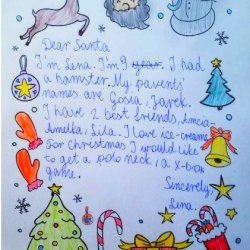 Dear Santa
I'm Lena. I'm 9 year. I had
a hamster. My parents'
names are Gosia, Jarek.
I have 2 best friends, Amelia-
Amelka, Lila. I love ice-creams
For Christmas I would like
to get a polo neck, a X-box
game.
Sincerely,
Lena.